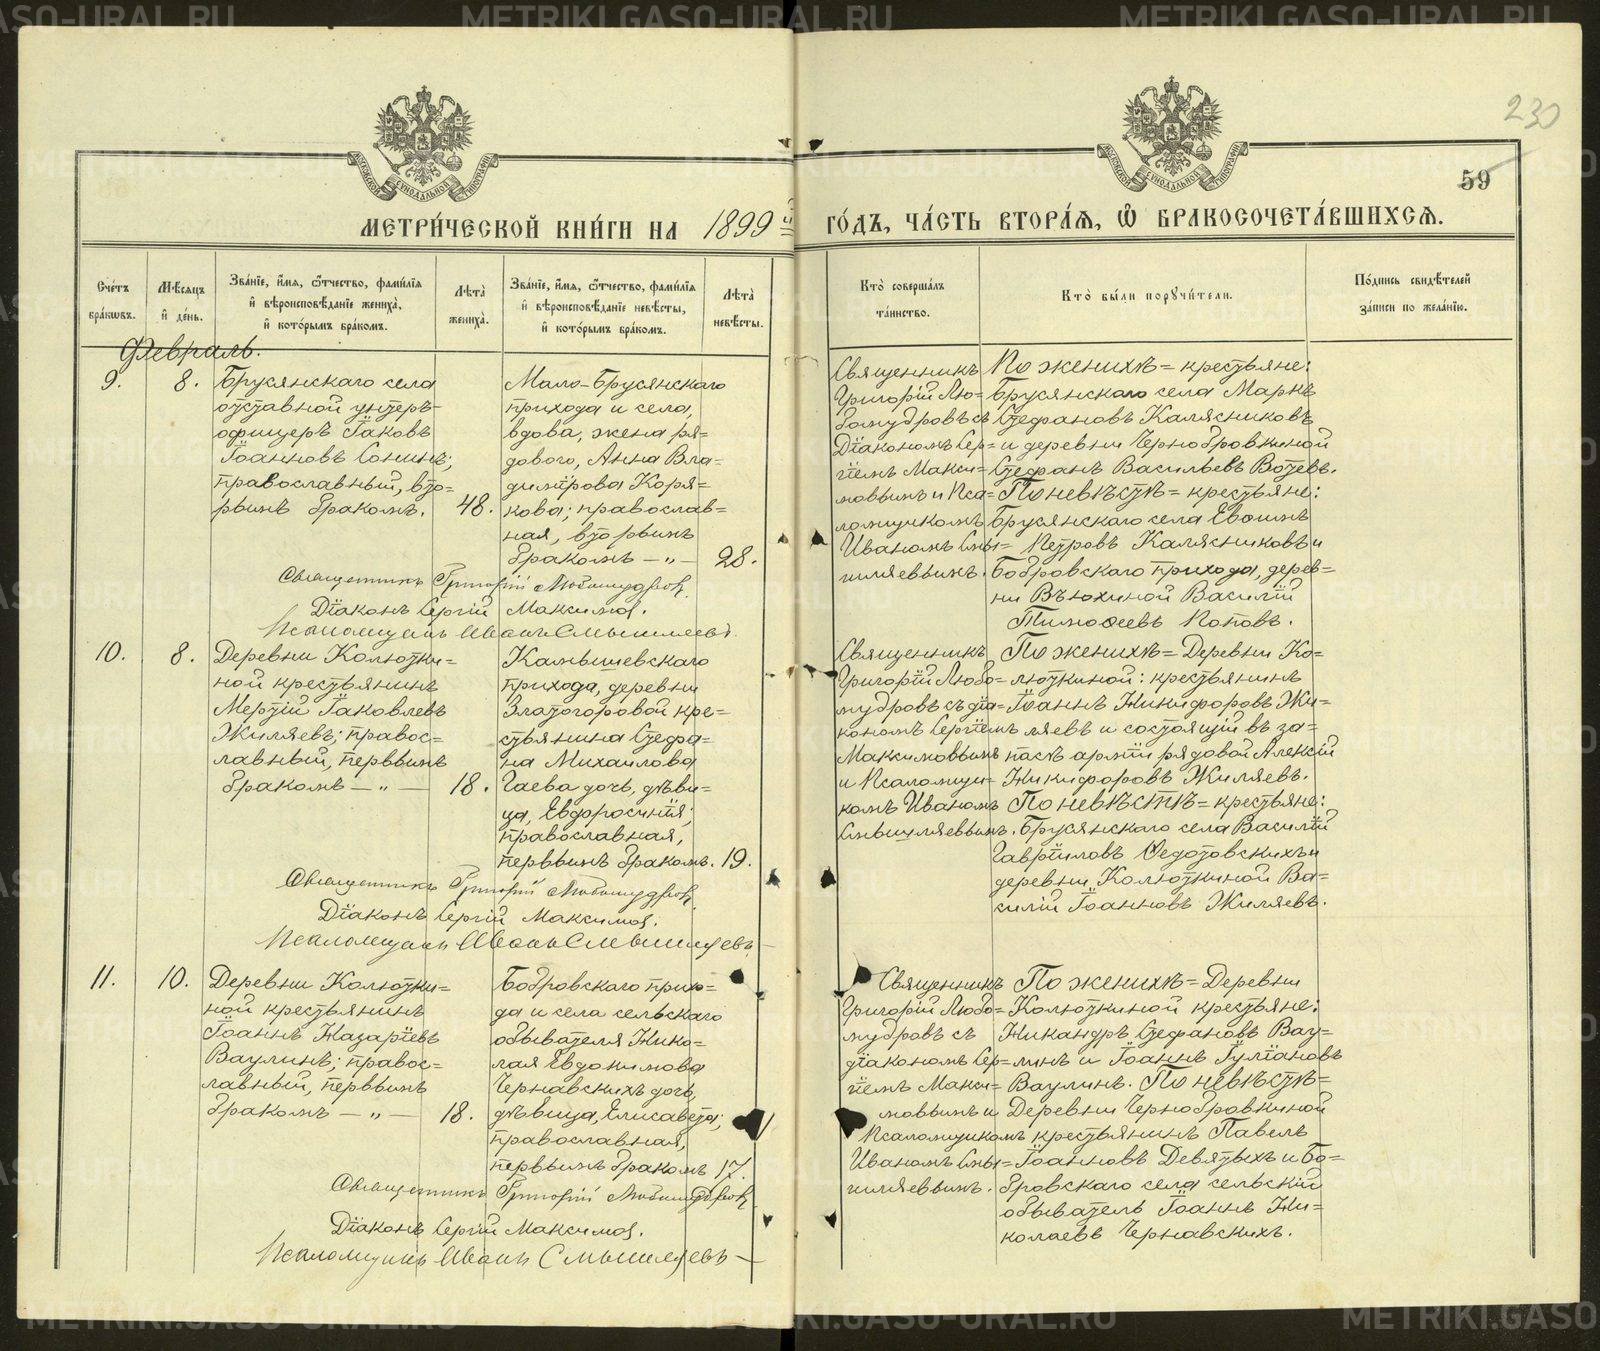 230
59
МЕТРИ́ЧЕСКОЙ КНИ́ГИ НА 1899 й
ГО́ДЪ, ЧА́СТЬ ВТОРА́Я, Ѽ БРАКОСОЧЕТА́ВШИХСЯ.
Сче́тъ бра́ковъ.
Мѣ́сяцъ и҆ де́нь.
Зва́нїе, и҆́мя, ѻ҆́тчество, фами́лїя
и҆ вѣроисповѣ́данїе жениха̀,
и҆ кото́рымъ бра́комъ.
Лѣта̀ жениха̀.
Зва́нїе, и҆́мя, ѻ҆́тчество, фами́лїя
и҆ вѣроисповѣ́данїе невѣ́сты,
и҆ кото́рымъ бра́комъ.
Лѣта̀ невѣ́сты.
Кто̀ соверша́лъ
та́инство.
Кто̀ бы́ли пору́чители.
По́дпись свидѣ́телей
за́писи по жела́нїю.
Февраль.
9.
8.
Брусянскаго села
отставной унтеръ-
офицеръ Іаковъ
Іоанновъ Сонинъ;
православный, вто=
рымъ бракомъ.
48.
Мало-Брусянскаго
прихода и села,
вдова, жена ря=
доваго, Анна Вла=
димірова Коря=
кова; православ=
ная, вторымъ
бракомъ — „ —
28.
Священникъ
Григорій Лю=
бомудровъ съ
Діакономъ Сер=
гіемъ Макси=
мовымъ и Пса=
ломщикомъ
Иваномъ Смы=
шляевымъ.
По женихѣ = крестьяне:
Брусянскаго села Маркъ
Стефановъ Калясниковъ
и деревни Чернобровкиной
Стефанъ Васильевъ Вотевъ.
По невѣстѣ = крестьяне:
Брусянскаго села Евѳимъ
Петровъ Калясниковъ и
Бобровскаго прихода, дерев=
ни Вьюхиной Василій
Тимоѳеевъ Поповъ.
Священникъ Григорій Любомудровъ.
Діаконъ Сергій Максимов.
Псаломщикъ Иванъ Смышляевъ.
10.
8.
Деревни Колютки=
ной крестьянинъ
Мертій Іаковлевъ
Жиляевъ; правос=
лавный, первымъ
бракомъ — „ —
18.
Камышевскаго
прихода, деревни
Златогоровой кре=
стьянина Стефа=
на Михаилова
Гаева дочь, дѣви=
ца, Евфросинія;
православная,
первымъ бракомъ.
19.
Священникъ
Григорій Любо=
мудровъ съ діа=
кономъ Сергіемъ
Максимовымъ
и Псаломщи=
комъ Иваномъ
Смышляевымъ.
По женихѣ = Деревни Ко=
люткиной: крестьянинъ
Іоаннъ Никифоровъ Жи=
ляевъ и состоящій въ за=
пасѣ арміи рядовой Алексій
Никифоровъ Жиляевъ.
По невѣстѣ = крестьяне:
Брусянскаго села Василій
Гавріиловъ Ѳедотовскихъ и
деревни Колюткиной Ва=
силій Іоанновъ Жиляевъ.
Священникъ Григорій Любомудровъ.
Діаконъ Сергій Максимов.
Псаломщикъ Иванъ Смышляевъ
11.
10.
Деревни Колютки=
ной крестьянинъ
Іоаннъ Назаріевъ
Ваулинъ; правос=
лавный, первымъ
бракомъ — „ —
18.
Бобровскаго прихо=
да и села сельскаго
обывателя Нико=
лая Евдокимова
Чернавскихъ дочь,
дѣвица, Елисавета;
православная,
первымъ бракомъ
17.
Священникъ
Григорій Любо=
мудровъ съ
діакономъ Сер=
гіемъ Макси=
мовымъ и
Псаломщикомъ
Иваномъ Смы=
шляевымъ.
По женихѣ = Деревни
Колюткиной крестьяне:
Никандръ Стефановъ Вау=
линъ и Іоаннъ Іуліановъ
Ваулинъ. По невѣстѣ =
Деревни Чернобровкиной
крестьянинъ Павелъ
Іоанновъ Девятыхъ и Бо=
бровскаго села сельскій
обыватель Іоаннъ Ни=
колаевъ Чернавскихъ.
Священникъ Григорій Любомудровъ
Діаконъ Сергій Максимов.
Псаломщикъ Иванъ Смышляевъ
METRIKI.GASO-URAL.RU